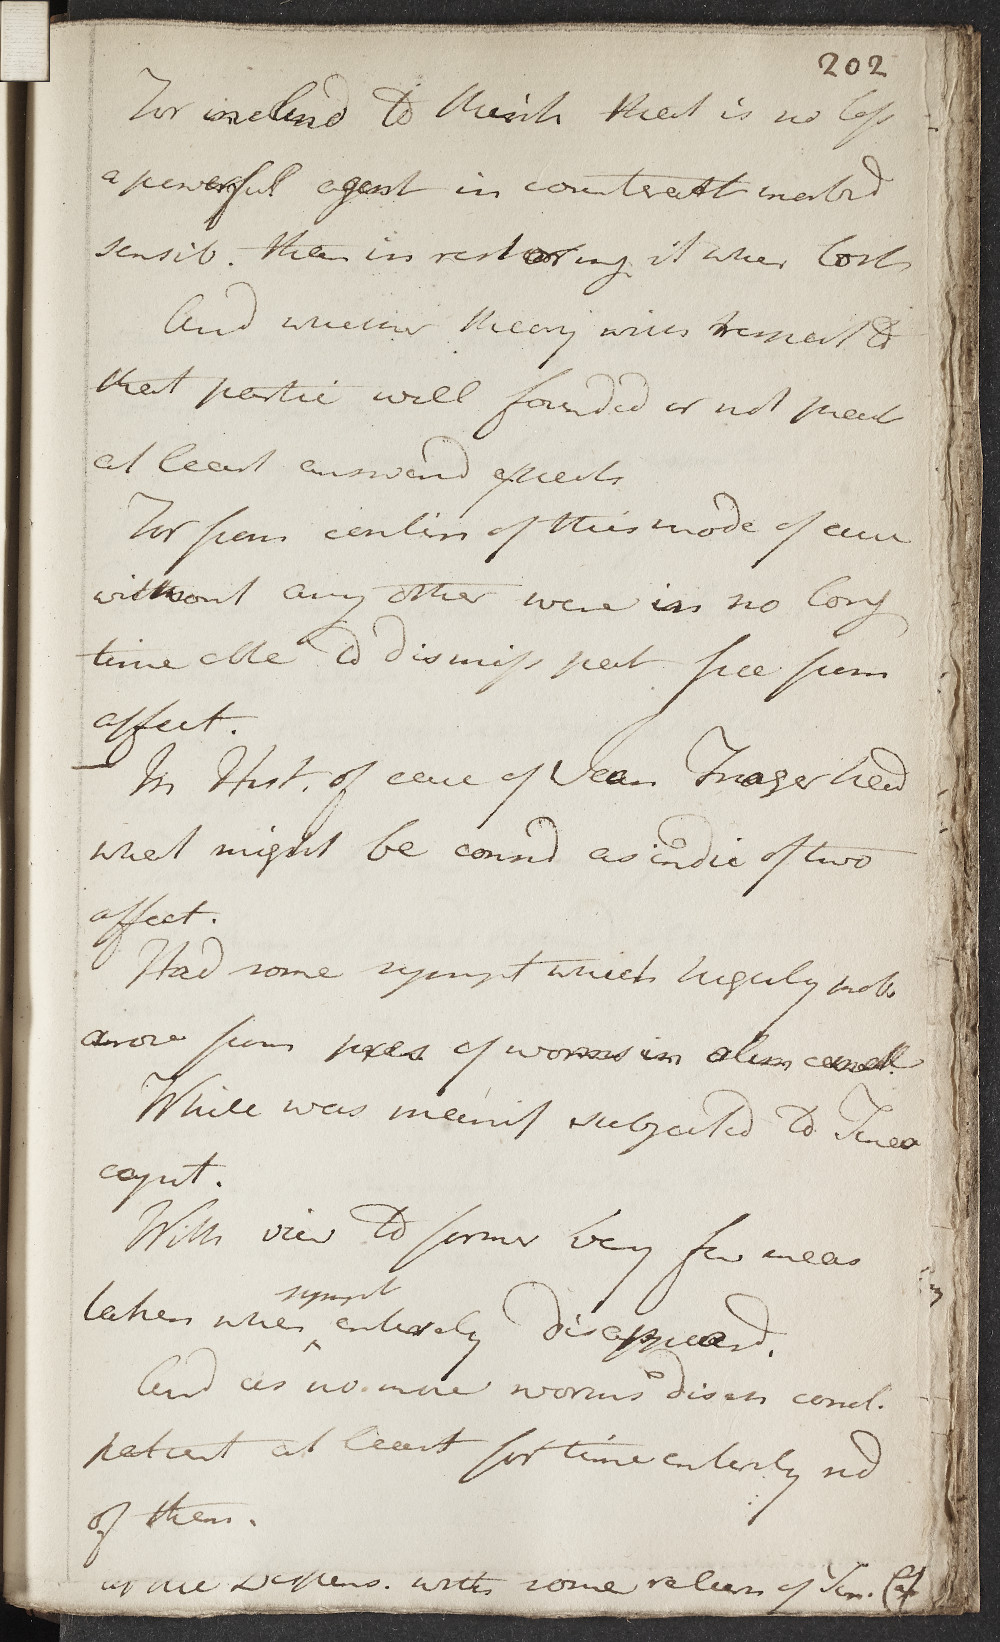 202
For inclind to think that is no less
a powerful agent in counteractt morbid
sensib. than in restoring it when lost
And whether theory with respect to
that partic well founded or not pract
at least answerd expects
For from contin of this mode of cure
without any other were in no long
time able to dismiss pat free from
affect.
In Hist. of case of Jean Frazer had
what might be consd as indic of two
affect.
Had some sympt which highly prob
arose from pres of worms in alim canal.
While was manif subjected to Tinea
caput.
With view to former very few meas
taken when sympt entirely disappeard.
And as no more worms disch concl.
patient at least for time entirely rid
of them.
with some of Tin.